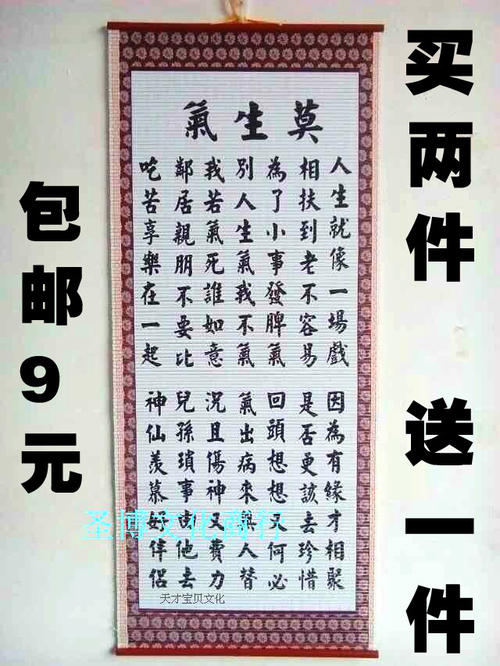 买两件 送一件
莫生氣
人生就像一場戲 因為有緣才相聚
相扶到老不容易 是否更該去珍惜
為了小事發脾氣 回頭想想又何必
別人生氣我不氣 氣出病來無人替
我若氣死誰如意 況且傷神又費力
鄰居親朋不要比 兒孫瑣事由他去
吃苦享樂在一起 神仙羨慕好伴侶
圣博文化商行
天才宝贝文化
包邮9元